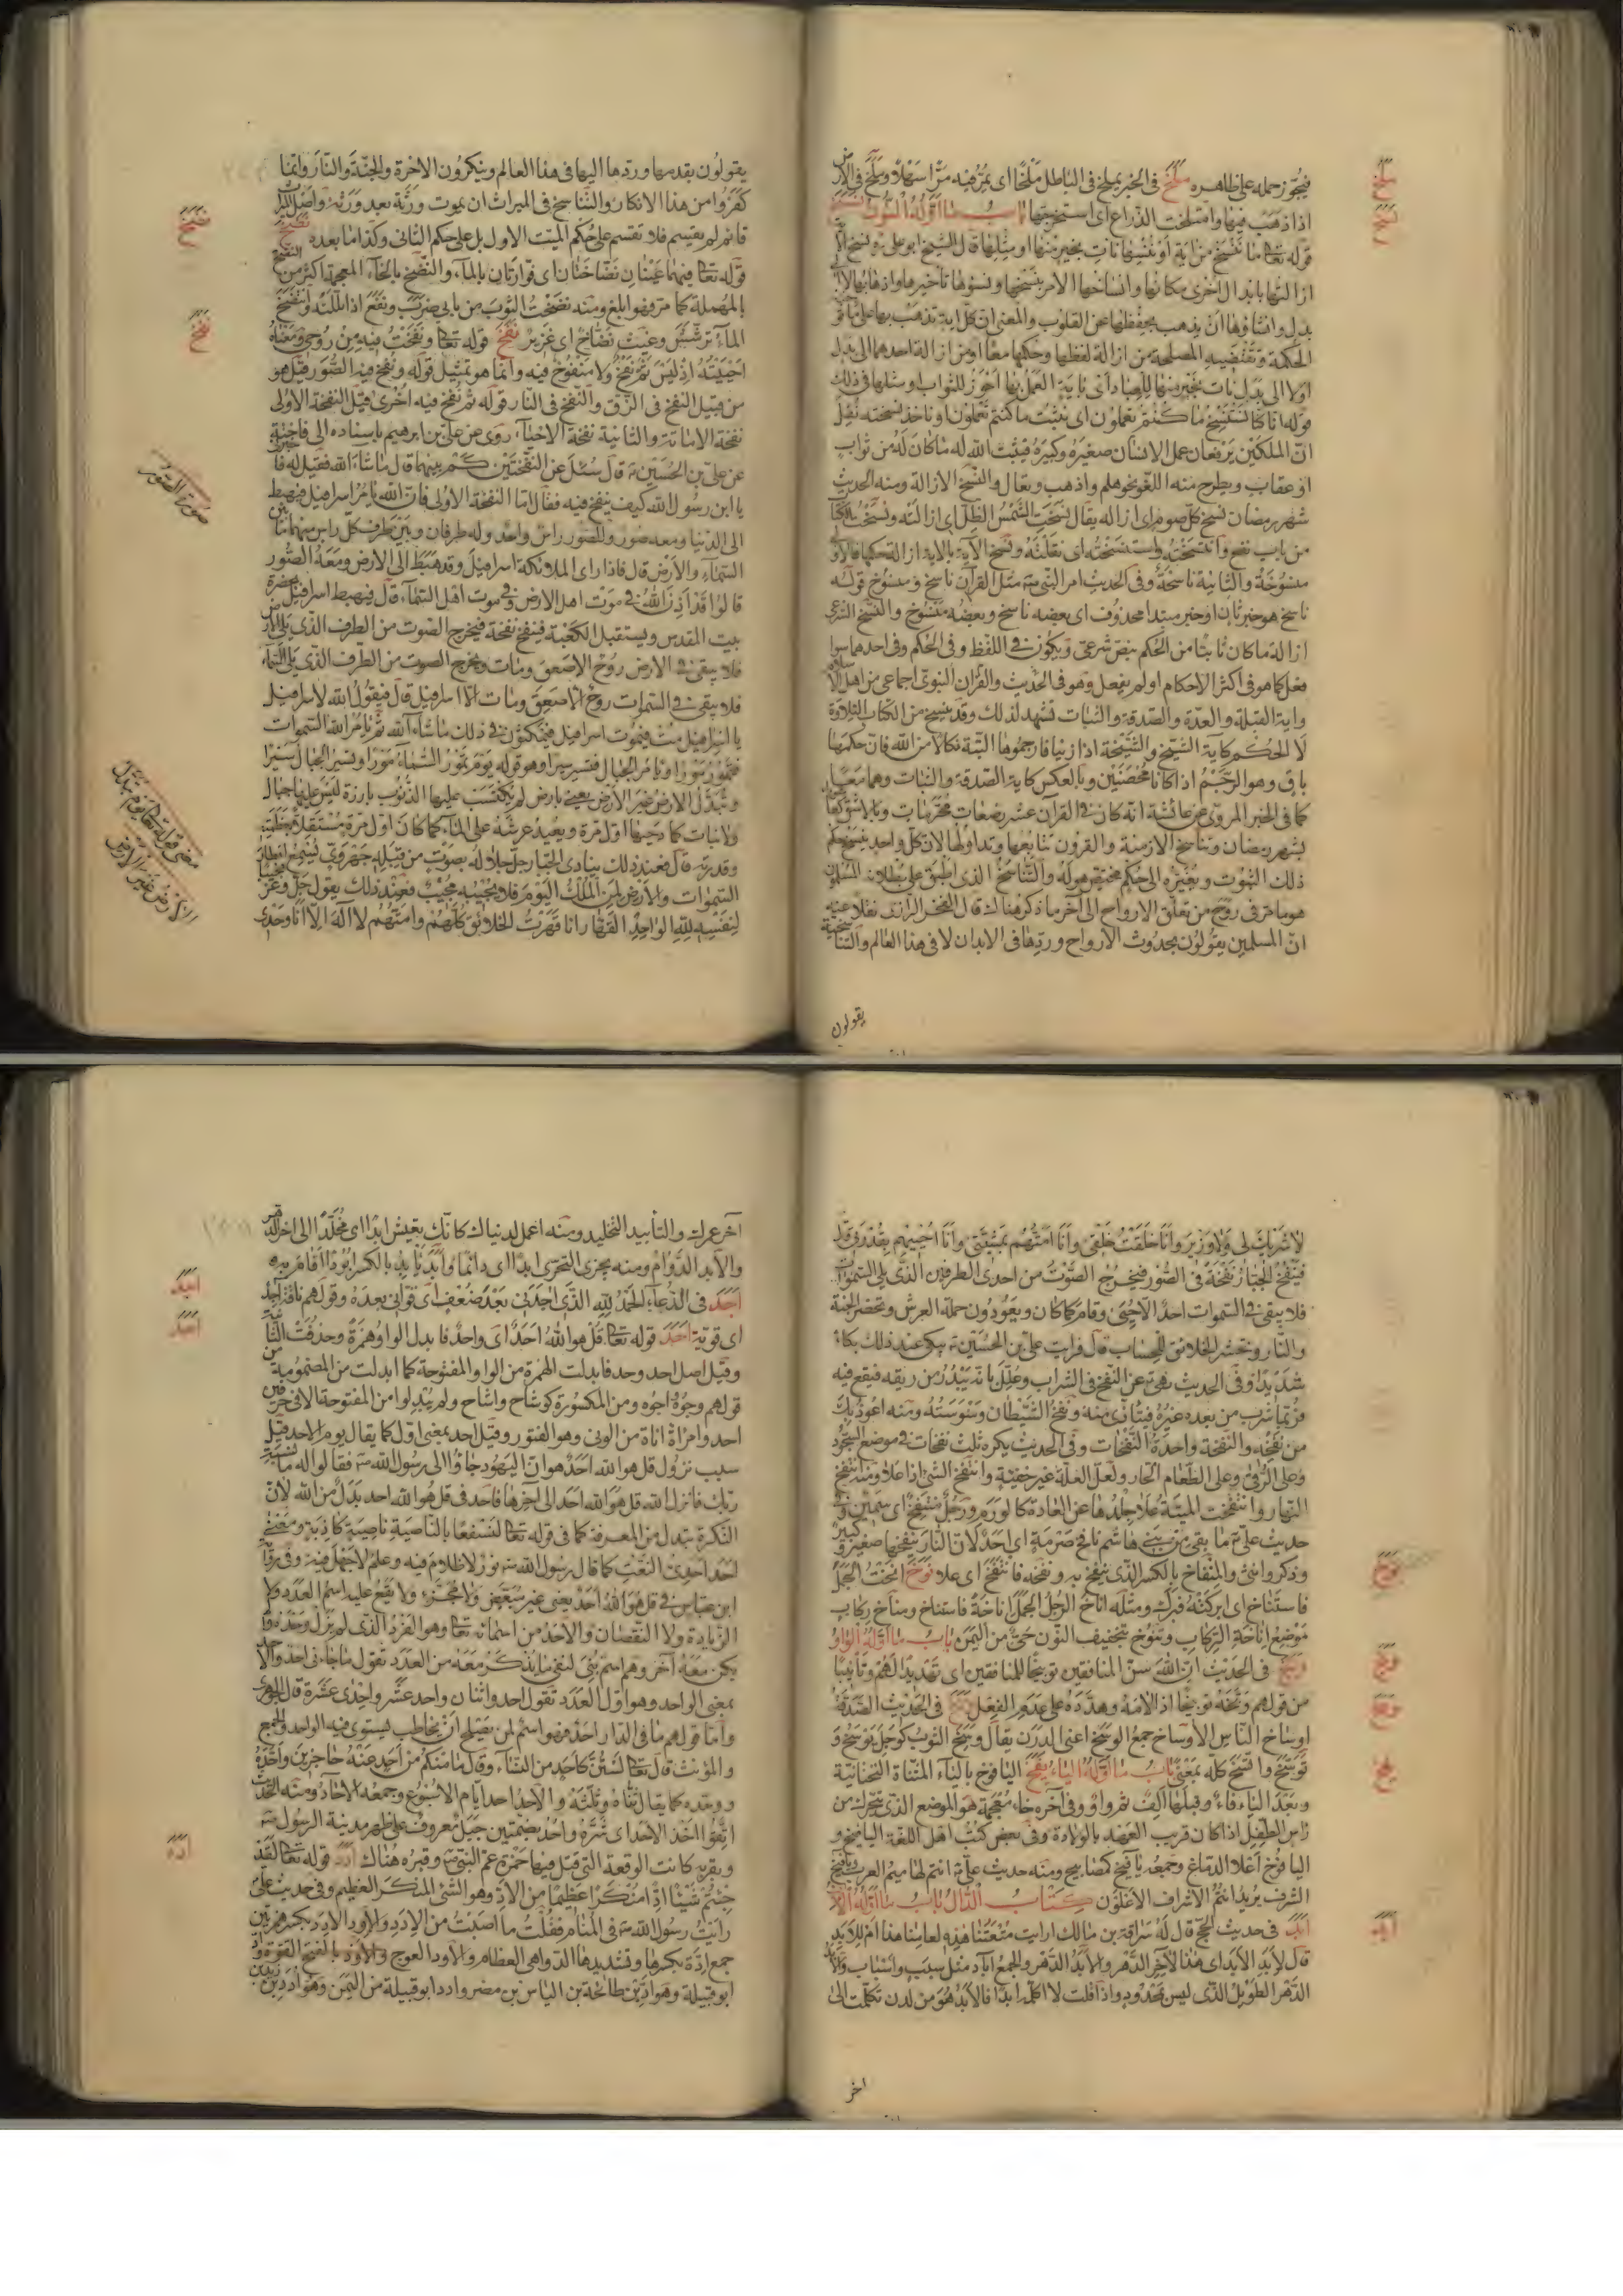 فيجوز حمله على ظاهره ملخ في الخبر يملخ في الباطل ملخا اى يمر فيه مرا سهلا وملخ في الارض
اذا ذهب فيها وامتلخت الذراع اى استخرجتها باب ما اوله النون نسخ
قوله تعالى ما ننسخ من اية او ننسها نات بخير منها او مثلها قال الشيخ ابو على ره نسخ الاية
ازالتها بابدال اخرى مكانها وانساخها الامر بنسخها ونسؤها تاخيرها واذهابها لا الى
بدل وانساؤها ان يذهب بحفظها عن القلوب والمعنى ان كل اية تذهب بها على ما توجبه
الحكمة وتقتضيه المصلحة من ازالة لفظها وحكمها معا او من ازالة احدهما الى بدل
اولا الى بدل نات بخير منها للعباد اى باية العمل بها احوز للثواب او مثلها في ذلك
قوله انا كنا نستنسخ ما كنتم تعملون اى نثبت ما كنتم تعملون او ناخذ نسخته نقل
ان الملكين يرفعان عمل الانسان صغيره وكبيره فيثبت الله له ما كان له من ثواب
او عقاب ويطرح منه اللغو نحو هلم واذهب وتعال والنسخ الازالة ومنه الحديث
شهر رمضان نسخ كل صوم اى ازاله يقال نسخت الشمس الظل اى ازالته ونسخت الكتاب
من باب نفع وانتسخته واستنسخته اى نقلته ونسخ الآية بالاية ازالة حكمها فالاولى
منسوخة والثانية ناسخة وفى الحديث امر النبى ص مثل القرآن ناسخ ومنسوخ قوله
ناسخ هو خبر ثان او خبر مبتدا محذوف اى بعضه ناسخ وبعضه منسوخ والنسخ الشرعى
ازالة ما كان ثابتا من الحكم بنص شرعى ويكون في اللفظ وفى الحكم وفى احدهما سوا
فعل كما هو فى اكثر الاحكام او لم يفعل وهو فى الحديث والقران النبوى اجماعى من اهل الاسلام
واية القبلة والعدة والصدقة والثبات تشهد لذلك وقد ينسخ من الكتاب التلاوة
لا الحكم كاية الشيخ والشيخة اذا زنيا فارجموها البتة نكالا من الله فان حكمها
باق وهو الرجم اذا كانا محصنين وبالعكس كاية الصدقة والثبات وهما معا
كما في الخبر المروى عن عائشة انه كان في القرآن عشر رضعات محرمات
بشهر رمضان وتناسخ الازمنة والقرون تتابعها وتداولها لان كل واحد ينسخ حكم
ذلك الثبوت ويغيره الى حكم مختص هو له والتناسخ الذى اطبق على بطلانه المسلمون
هو ما مر فى روح من تعلق الارواح الى آخر ما ذكر هناك قال الفخر الرازى نقلا عنه
ان المسلمين يقولون بحدوث الارواح وردها فى الابدان لا فى هذا العالم والتناسخية
يقولون
ملخ
نسخ
يقولون بقدمها وردها اليها فى هذا العالم وينكرون الاخرة والجنة والنار وانما
كفروا من هذا الانكار والتناسخ فى الميراث ان يموت ورثة بعد ورثة واصل الميراث
قائم لم يقسم فلا تقسم على حكم الميت الاول بل على حكم الثانى وكذا ما بعده نضخ
قوله تعالى فيهما عينان نضاختان اى فوارتان بالماء والنضخ بالخاء المعجمة اكثر من النضح
بالمهملة كما مر فهو ابلغ ومنه نضخت الثوب من بابى ضرب ونفع اذا بللته وانتضخ
الماء ترشش وغيث نضاخ اى غزير نفخ قوله تعالى ونفخت فيه من روحى ومعناه
احييته اذ ليس ثم نفخ ولا منفوخ فيه وانما هو تمثيل قوله ونفخ فى الصور قيل هو
من قبيل النفخ فى الزق والنفخ فى النار قوله ثم نفخ فيه اخرى قيل النفخة الاولى
نفخة الاماتة والثانية نفخة الاحياء روى عن على بن ابرهيم باسناده الى فاخته
عن على بن الحسين ع قال سئل عن النفختين كم بينهما قال ما شاء الله فقيل له فا
يا ابن رسول الله كيف ينفخ فيه فقال اما النفخة الاولى فان الله يامر اسرافيل فيهبط
الى الدنيا ومعه صور وللصور راس واحد وله طرفان وبين طرف كل راس منهما ما بين
السماء والارض قال فاذا راى الملائكة اسرافيل وقد هبط الى الارض ومعه الصور
قالوا قد اذن الله في موت اهل الارض وفى موت اهل السماء قال فيهبط اسرافيل بحضرة
بيت المقدس ويستقبل الكعبة فينفخ نفخة فيخرج الصوت من الطرف الذى يلى الارض
فلا يبقى في الارض روح الا صعق ومات ويخرج الصوت من الطرف الذى يلى السماء
فلا يبقى في السموات روح الا صعق ومات الا اسرافيل قال فيقول الله لاسرافيل
يا اسرافيل مت فيموت اسرافيل فيمكثون في ذلك ما شاء الله ثم يامر الله السموات
فتمور مورا ويامر الجبال فتسير سيرا وهو قوله يوم تمور السماء مورا وتسير الجبال سيرا
وتبدل الارض غير الارض يعنى بارض لم تكتسب عليها الذنوب بارزة ليس عليها جبال
ولا نبات كما دحيها اول مرة ويعيد عرشه على الماء كما كان اول مرة مستقلا بعظمته
وقدرته قال فعند ذلك ينادى الجبار جل جلاله بصوت من قبله جهورى يسمع اقطار
السموات والارض لمن الملك اليوم فلا يجيبه مجيب فعند ذلك يقول جل وعز مجيبا
لنفسه لله الواحد القهار انا قهرت الخلائق كلهم وامتهم لا اله الا انا وحدى
نضخ
نفخ
صورة الصور
معنى قوله تعالى يوم تبدل
الارض غير الارض
لا شريك لى ولا وزير وانا خلقت خلقى وانا امتهم بمشيتى وانا احييهم بقدرتى قال
فينفخ الجبار نفخة فى الصور فيخرج الصوت من احدى الطرفين الذى يلى السموات
فلا يبقى فى السموات احد الا حيى وقام كما كان ويعودون حملة العرش وتحضر الجنة
والنار وتحشر الخلائق للحساب قال فرايت على بن الحسين ع يبكى عند ذلك بكاء
شديدا وفى الحديث نهى عن النفخ فى الشراب وعلل بانه يبدر من ريقه فيقع فيه
فربما شرب من بعده غيره فيتاذى منه ونفخ الشيطان وسوسته ومنه اعوذ بك
من نفخه والنفخة واحدة النفخات وفى الحديث يكره ثلث نفخات فى موضع السجود
وعلى الرقى وعلى الطعام الحار ولعل العلة غير خفية وانتفخ الشئ اذا علا ومنه انتفخ
النهار وانتفخت الميتة علا جلدها عن العادة كالورم ورجل منتفخ اى سمين وفى
حديث على ع ما بقى من بنى هاشم نافخ ضرمة اى احد لان النار ينفخها صغير وكبير
وذكر وانثى والمنفاخ بالكسر الذى ينفخ به ونفخه فانتفخ اى علا نوخ انخت الجمل
فاستناخ اى ابركته فبرك ومثله اناخ الرجل الجمل اناخة فاستناخ ومناخ ركاب
موضع اناخة الركاب وتنوخ بتخفيف النون حى من اليمن باب ما اوله الواو
وبخ فى الحديث ان الله سن المنافقين توبيخا للمنافقين اى تهديدا لهم وتانيبا
من قولهم وبخته توبيخا اذا لامه وهدده على عدم الفعل وسخ فى الحديث الصدقة
اوساخ الناس الاوساخ جمع الوسخ اعنى الدرن يقال وسخ الثوب كوجل يوسخ و
توسخ واتسخ كله بمعنى باب ما اوله الياء يفخ اليافوخ بالياء المثناة التحتانية
وبعد الياء فاء وقبلها الف ثم واو وفى آخره خاء معجمة هو الموضع الذى يتحرك من
راس الطفل اذا كان قريب العهد بالولادة وفى بعض كتب اهل اللغة اليافوخ و
اليافوخ اعلا الدماغ وجمعه يآفيخ كمصابيح ومنه حديث على ع انتم لهاميم العرب ويآفيخ
الشرف يريد انتم الاشراف الاعلون كتاب الدال باب ما اوله الالف
ابد فى حديث الحج قال له سراقة بن مالك ارايت متعتنا هذه لعامنا هذا ام للابد
قال لابد الابد اى هذا لآخر الدهر والابد الدهر والجمع آباد مثل سبب واسباب والابد
الدهر الطويل الذى ليس بمحدود واذا قلت لا اكلمه ابدا فالابد هو من لدن تكلمت الى
اخر
نوخ
وبخ
وسخ
يفخ
ابد
آخر عمرك والتأبيد التخليد ومنه اعمل لدنياك كانك تعيش ابدا اى مخلدا الى اخر الدهر
والابد الدوام ومنه يجزى التحرى ابدا اى دائما وابد يأبد بالكسر ابودا اقام به
اجد فى الدعاء الحمد لله الذى اجدنى بعد ضعف اى قوانى بعده وقولهم ناقة اجد
اى قوية احد قوله تعالى قل هو الله احد اى واحد فابدل الواو همزة وحذفت الثانية
وقيل اصل احد وحد فابدلت الهمزة من الواو المفتوحة كما ابدلت من المضمومة من
قولهم وجوه اجوه ومن المكسورة كوشاح واشاح ولم يبدلوا من المفتوحة الا فى حرفين
احد وامراة اناة من الونى وهو الفتور وقيل احد بمعنى اول كما يقال يوم الاحد قيل
سبب نزول قل هو الله احد هو ان اليهود جاؤا الى رسول الله ص فقالوا له ما نسبة
ربك فانزل الله قل هو الله احد الى اخرها فاحد فى قل هو الله احد بدل من الله لان
النكرة تبدل من المعرفة كما فى قوله تعالى لنسفعا بالناصية ناصية كاذبة ومعنى
احد احدى النعت كما قال رسول الله ص نور لا ظلام فيه وعلم لا جهل فيه وفى رواية
ابن عباس فى قل هو الله احد يعنى غير متبعض ولا متجز ولا يقع عليه اسم العدد ولا
الزيادة ولا النقصان والاحد من اسمائه تعالى وهو الفرد الذى لم يزل وحده ولم
يكن معه آخر وهو اسم بنى لنفى ما يذكر معه من العدد تقول ما جاءنى احد
بمعنى الواحد وهو اول العدد تقول احد واثنان واحد عشر واحدى عشرة قال الجوهرى
واما قولهم ما فى الدار احد فهو اسم لمن يصلح ان يخاطب يستوى فيه الواحد والجمع
والمؤنث قال تعالى لستن كاحد من النساء وقال ما منكم من احد عنه حاجزين واحده
ووحده كما يقال ثناه وثلثه والاحد احد ايام الاسبوع وجمعه الاحاد ومنه الحديث
اتقوا اخذ الاحد اى شره واحد بضمتين جبل معروف على ظهر مدينة الرسول ص
وبقربه كانت الوقعة التى قتل فيها حمزة عم النبى ص وقبره هناك ادد قوله تعالى لقد
جئتم شيئا ادا منكرا عظيما من الاد وهو الشئ المنكر العظيم وفى حديث على
رايت رسول الله ص فى المنام فقلت ما اصبت من الادد والاود الادد بكسر همزتين
جمع ادة بكسرها وتشديدها الدواهى العظام والاود العوج والاد بالفتح القوة واد
ابو قبيلة وهو اد بن طابخة بن الياس بن مضر وادد ابو قبيلة من اليمن وهو ادد بن زيد بن
اجد
احد
ادد